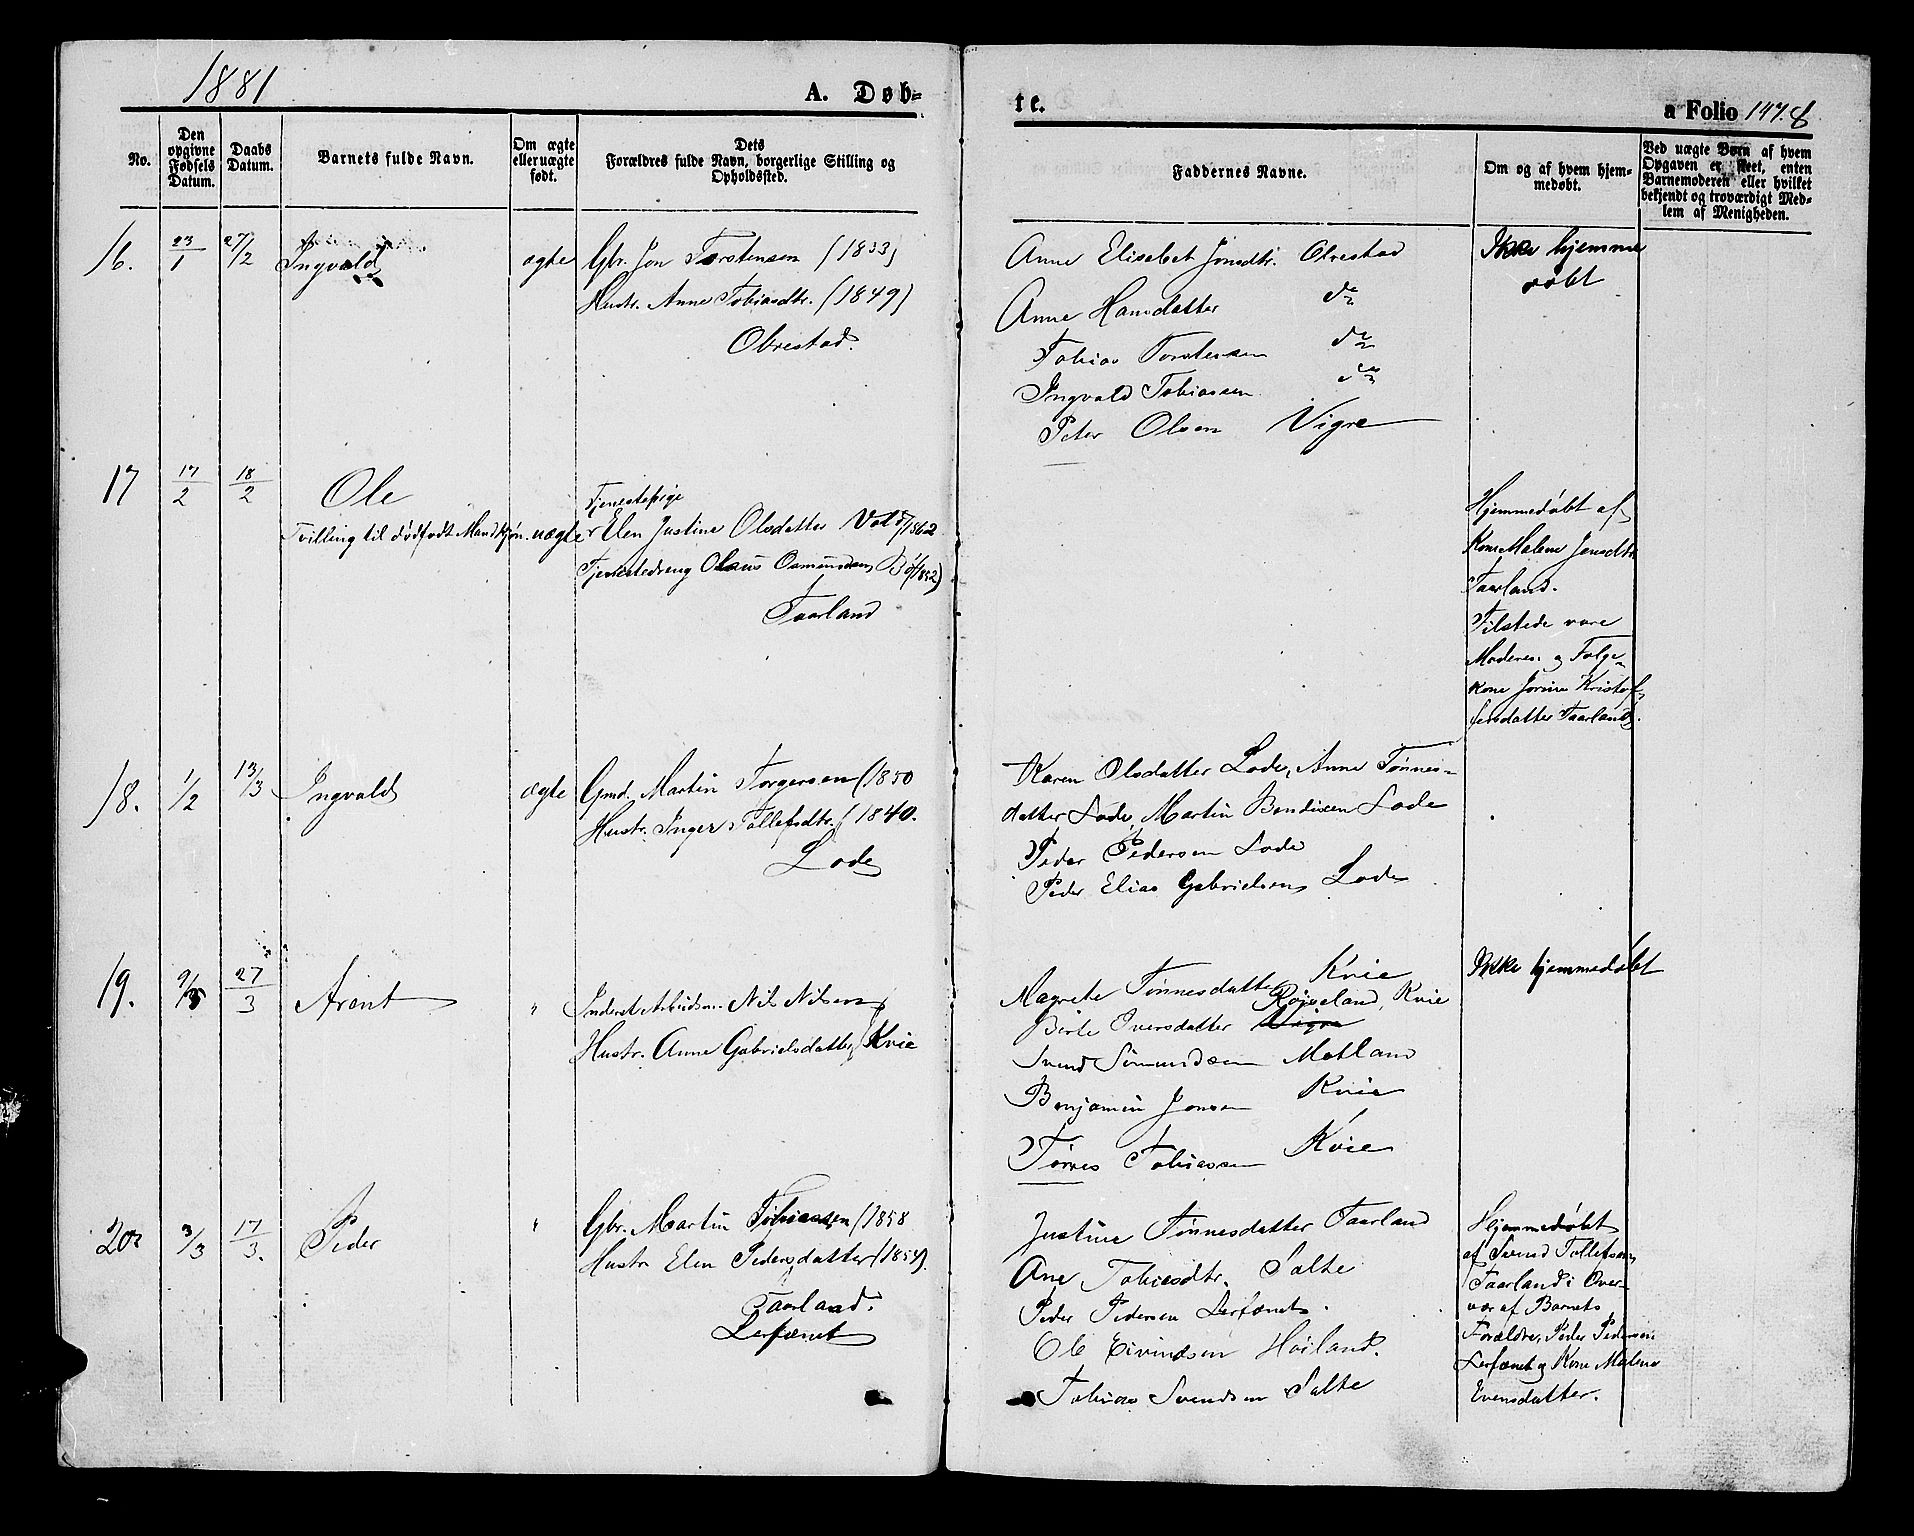 1881
A. Døb=
te.
a Folio 147.8
No.
Den opgivne Fødsels Datum.
Daabs Datum.
Barnets fulde Navn.
Om ægte eller uægte født.
Dets Forældres fulde Navn, borgerlige Stilling og Opholdssted.
Faddernes Navne.
Om og af hvem hjemmedøbt.
Ved uægte Børn af hvem Opgaven er skeet, enten Barnemoderen eller hvilket bekjendt og troværdigt Medlem af Menigheden.
16. 23/1 27/2 Ingvald ægte Gbr. Jon Torstensen (1833)
Hustr. Anne Tobiasdtr. (1849)
Obrestad.
Anne Elisabet Jonsdtr. Obrestad
Anne Hansdatter do
Tobias Torstensen do
Ingvald Tobiassen do
Peter Olsen Vigre
Ikke hjemme
døbt
17 17/2 18/2 Ole
Tvilling til dødfødt Mandkjøn. uægte
Tjenestepige
Elen Justine Olsdatter Vold 1862
Tjenestedreng Olaus Osmundsen Bø (1852)
Taarland
Hjemmedøbt af
Kone Malene Jensdtr
Taarland.
Tilstede vare
Moderen og Følge-
kone Jorine Kristof-
fersdatter Taarland.
18. 1/2 13/3 Ingvald ægte Gmd. Martin Torgersen (1850
Hustr. Inger Tollefsdtr. (1840.
Lode
Karen Olsdatter Lode, Anne Tønnes-
datter Lode, Martin Bendixen Lode
Peder Pedersen Lode
Peder Elias Gabrielsen Lode
19. 9/3 27/3 Arent " Inderst Arbeidsm. Nils Nilsen
Hustr. Anne Gabrielsdatter Kvie
Magrete Tønnesdatter Kvie
Birte Oversdatter Vigre Røiseland, Kvie
Svend Sømundsen Motland
Benjamin Jonsen Kvie
Tønnes Tobiassen Kvie
Ikke hjemmedøbt
20. 3/3 17/3. Peder " Gbr. Martin Tobiassen (1858
Hustr Elen Pedersdatter (1854).
Taarland.
Lerfænet
Justine Tønnesdatter Taarland
Ane Tobiasdtr. Salte
Peder Pedersen Lerfænet.
Ole Eivindsen Høiland.
Tobias Svendsen Salte
Hjemmedøbt
af Svend Tollefsen
Taarland i Over-
vær af Barnets
Forældre, Peder Pedersen
Lerfænet og Kone Malene
Evensdatter.